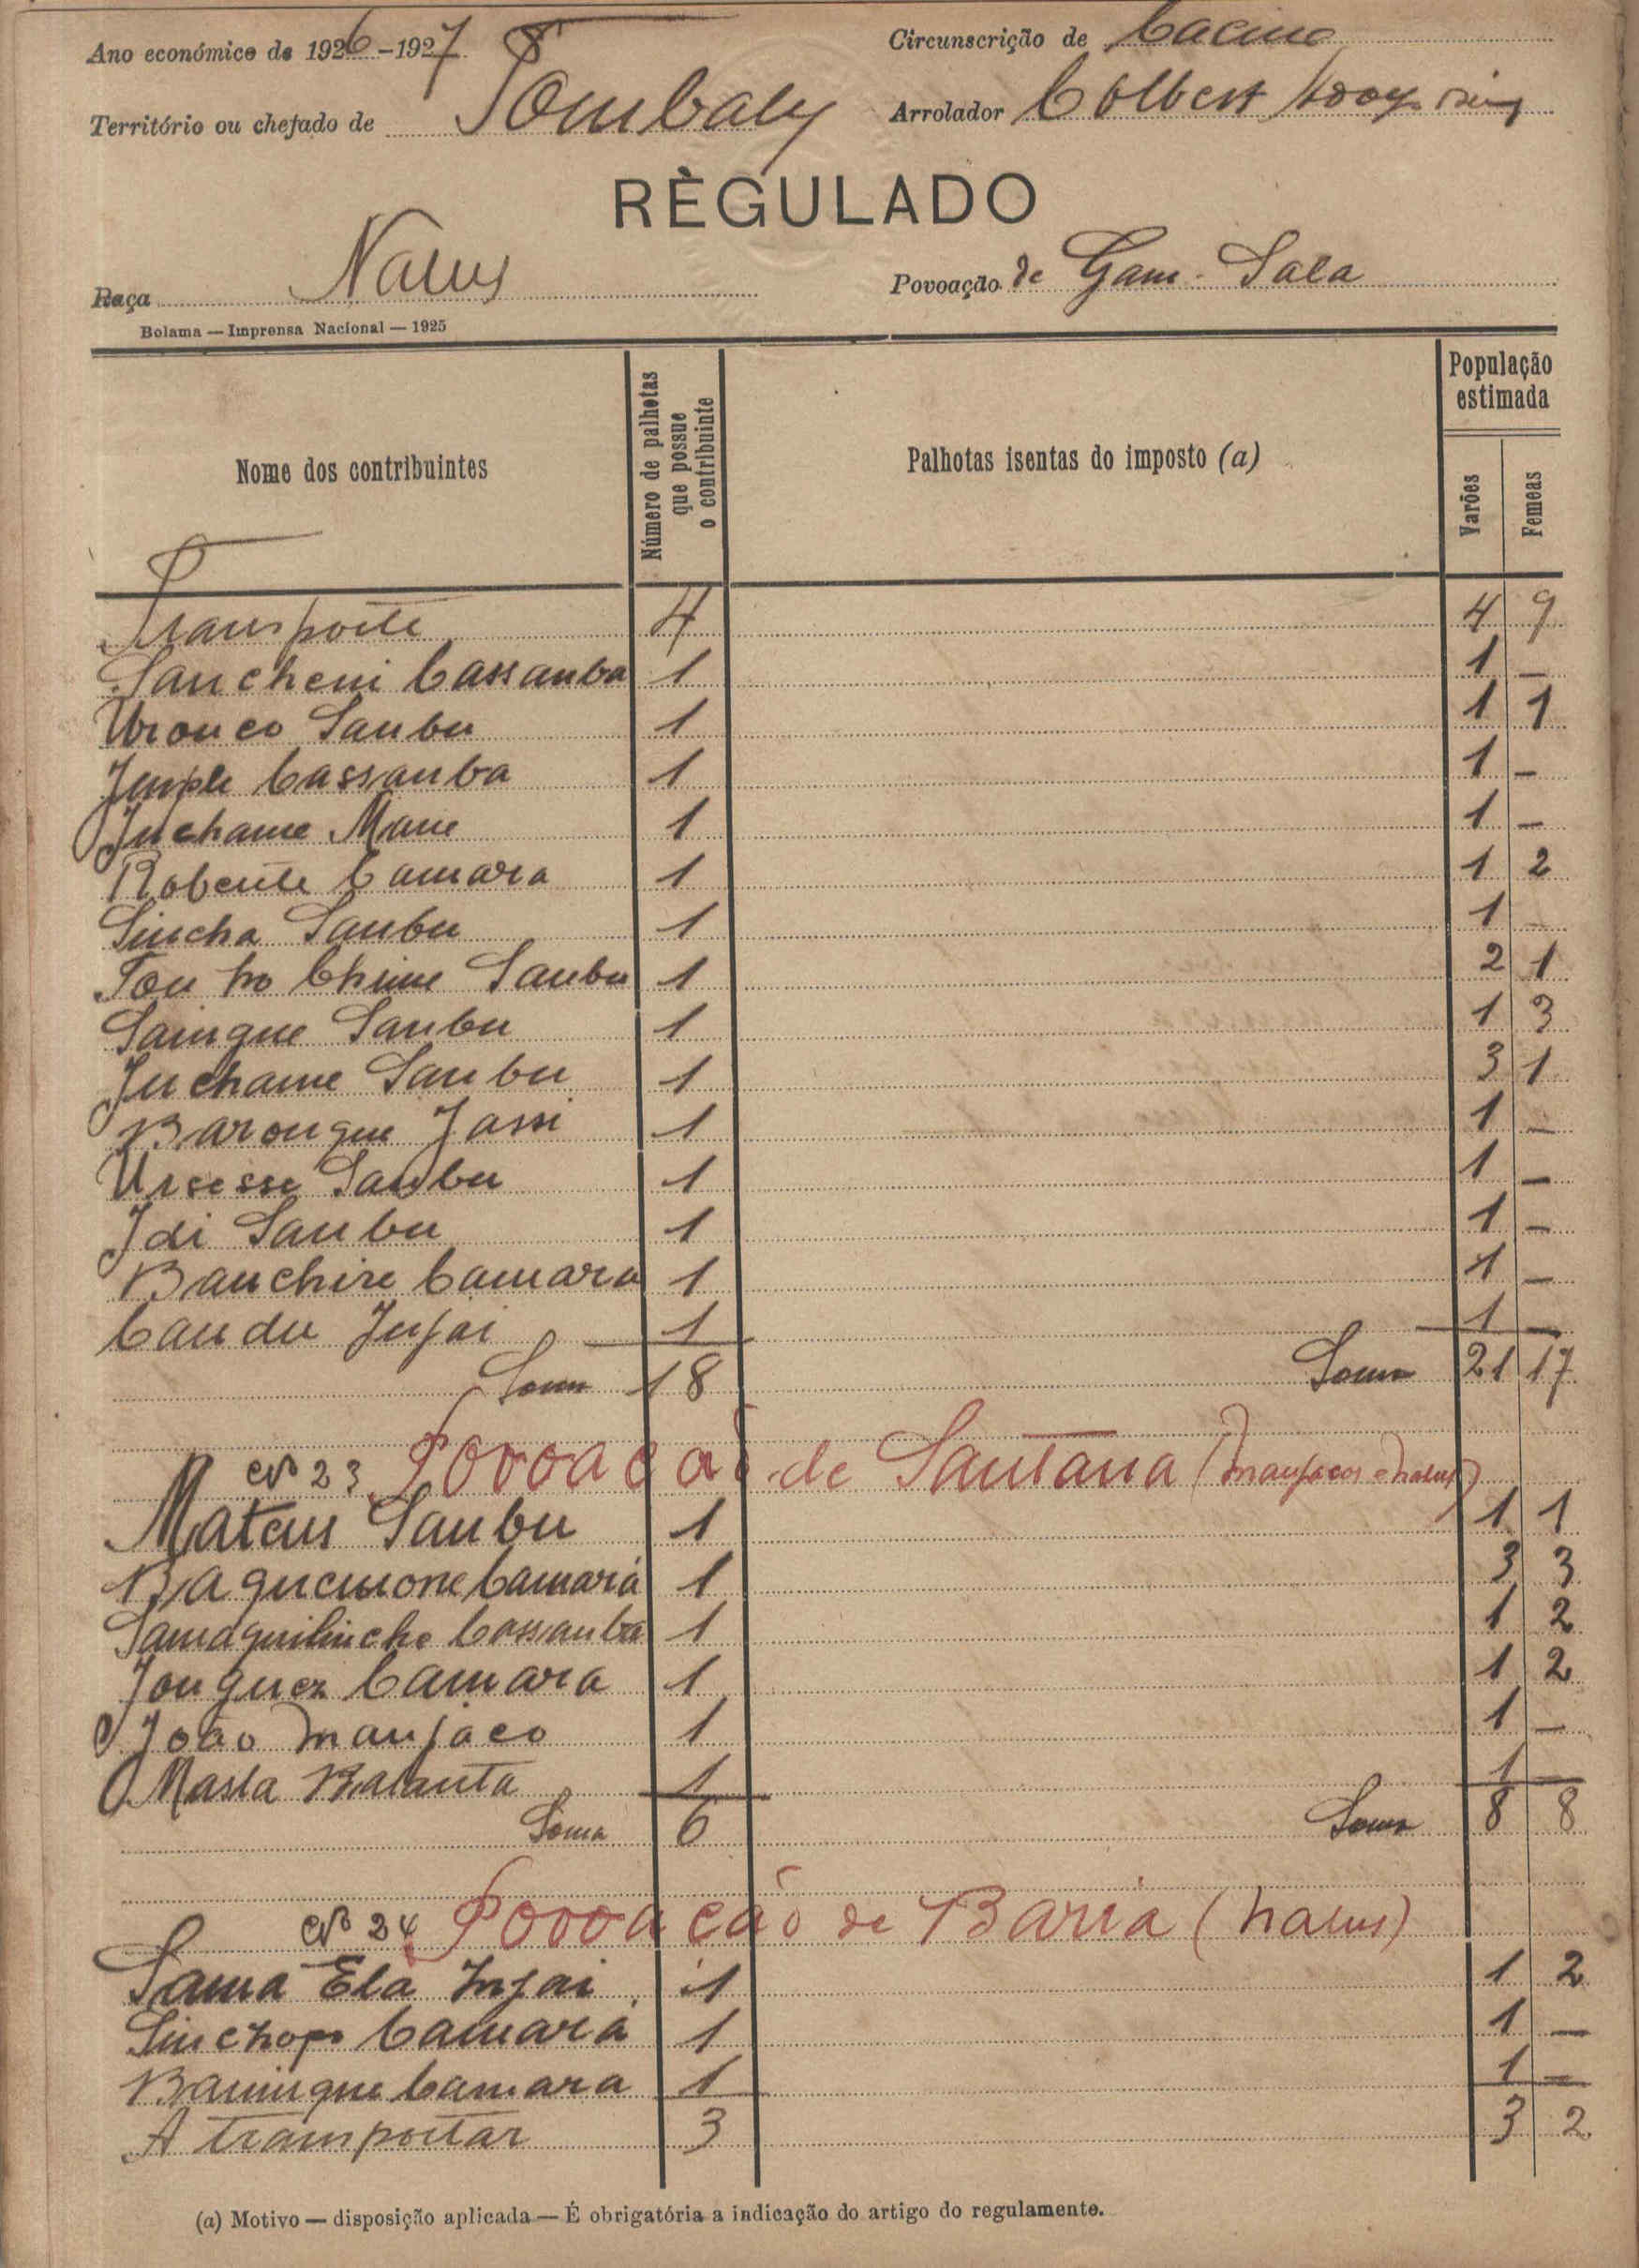 Ano económico de 1926-1927
Circunscrição de Cacine
Território ou chefado de Tombaly
Arrolador Colbert
RÈGULADO
Raça Nalus
Povoação de Gam-Sala
Bolama — Imprensa Nacional — 1925
Nome dos contribuintes
Número de palhotas que possue o contribuinte
Palhotas isentas do imposto (a)
População estimada
Varões
Femeas
Transporte 4 4 9
Sancheni Cassamba 1 1 —
Uronco Sambu 1 1 1
Cassamba 1 1 —
Juchame Mane 1 1 —
Robente Camara 1 1 2
Sincha Sambu 1 1 —
Chime Sambu 1 2 1
Saingue Sambu 1 1 3
Juchame Sambu 1 3 1
Barongue Jassi 1 1 —
Ursesse Sambu 1 1 —
Idi Sambu 1 1 —
Banchire Camara 1 1 —
Candu Injai 1 1 —
Soma 18 Soma 21 17
Nº 23 Povoação de Santana (Manjacos e Nalus)
Mateus Sambu 1 1 1
Camará 1 3 3
Cassamba 1 1 2
Camara 1 1 2
João Manjaco 1 1 —
Masla Balanta 1 1 —
Soma 6 Soma 8 8
Nº 24 Povoação de Baria (Nalus)
Sama Ela Injai 1 1 2
Camará 1 1 —
Baningue Camara 1 1 —
A transportar 3 3 2
(a) Motivo — disposição aplicada — É obrigatória a indicação do artigo do regulamento.